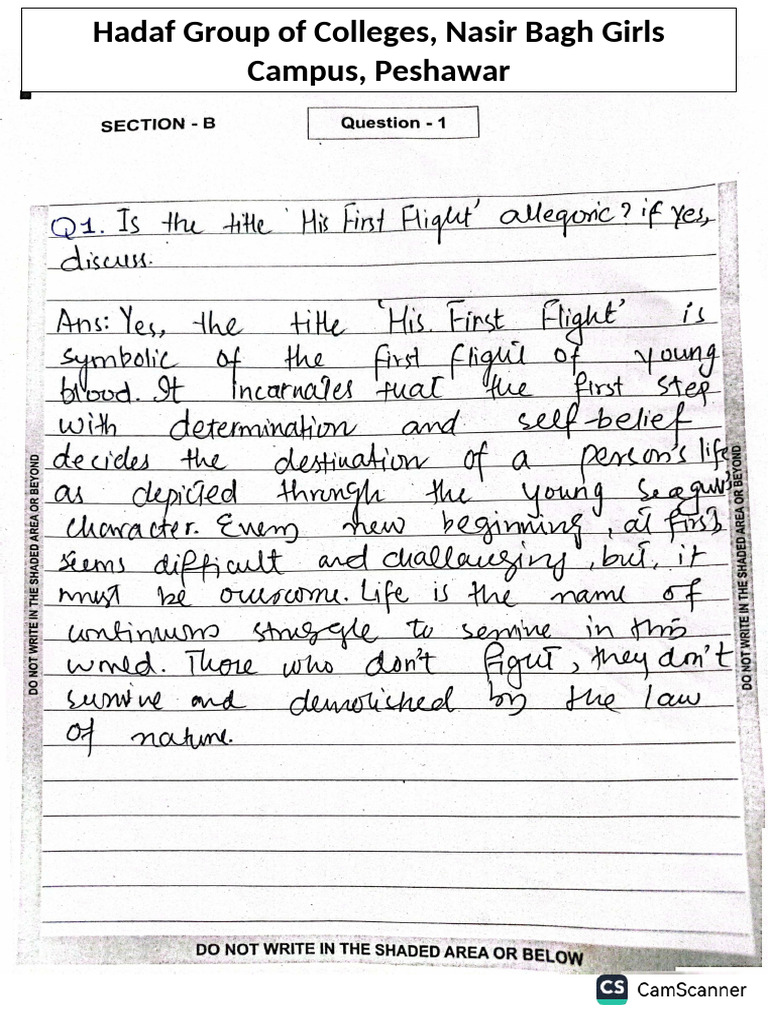 Hadaf Group of Colleges, Nasir Bagh Girls
Campus, Peshawar
SECTION - B
Question - 1
Q1. Is the title 'His First Flight' allegoric? if yes,
discuss.
Ans: Yes, the title 'His First Flight' is
symbolic of the first flight of young
blood. It incarnates that the first step
with determination and self-belief
decides the destination of a person's life
as depicted through the young seagull's
character. Every new beginning, at first
seems difficult and challanging, but, it
must be overcome. Life is the name of
continuous struggle to survive in this
world. Those who don't fight, they don't
survive and demolished by the law
of nature.
DO NOT WRITE IN THE SHADED AREA OR BEYOND
DO NOT WRITE IN THE SHADED AREA OR BEYOND
DO NOT WRITE IN THE SHADED AREA OR BELOW
CS CamScanner